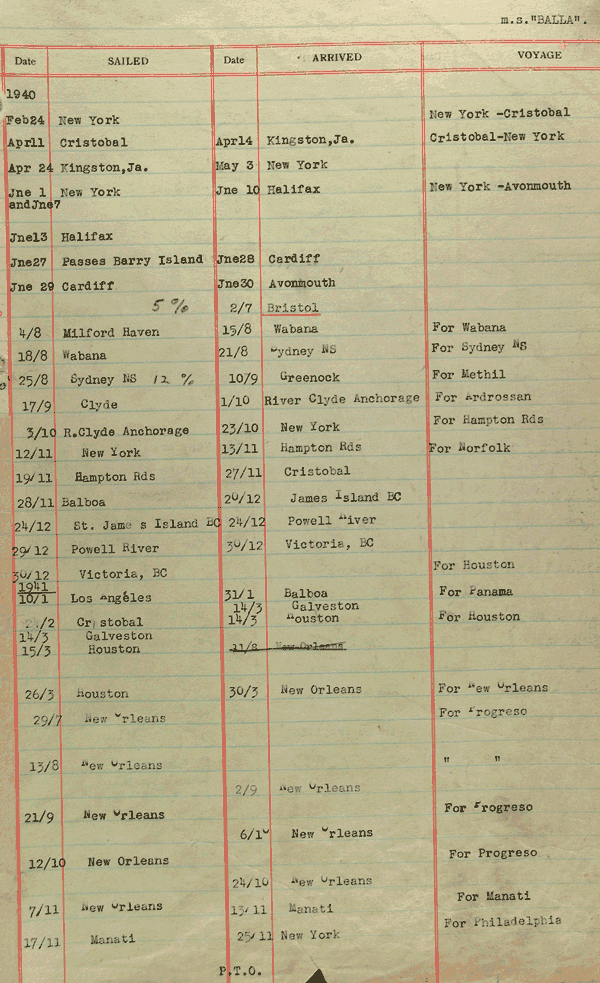 m.s."BALLA".
Date SAILED Date ARRIVED VOYAGE
1940
Feb24 New York New York -Cristobal
Apr11 Cristobal Apr14 Kingston,Ja. Cristobal-New York
Apr 24 Kingston,Ja. May 3 New York
Jne 1 New York Jne 10 Halifax New York -Avonmouth
andJne7
Jne13 Halifax
Jne27 Passes Barry Island Jne28 Cardiff
Jne 29 Cardiff Jne30 Avonmouth
5 % 2/7 Bristol
4/8 Milford Haven 15/8 Wabana For Wabana
18/8 Wabana 21/8 Sydney NS For Sydney NS
25/8 Sydney NS 12 % 10/9 Greenock For Methil
17/9 Clyde 1/10 River Clyde Anchorage For Ardrossan
3/10 R.Clyde Anchorage 23/10 New York For Hampton Rds
12/11 New York 13/11 Hampton Rds For Norfolk
19/11 Hampton Rds 27/11 Cristobal
28/11 Balboa 20/12 James Island BC
24/12 St. Jame s Island BC 24/12 Powell River
29/12 Powell River 30/12 Victoria, BC
30/12 Victoria, BC For Houston
1941
10/1 Los Angeles 31/1 Balboa For Panama
14/3 Galveston
/2 Cristobal 14/3 Houston For Houston
14/3 Galveston
15/3 Houston 11/8 New Orleans
26/3 Houston 30/3 New Orleans For New Orleans
29/7 New Orleans For Progreso
13/8 New Orleans " "
2/9 New Orleans
21/9 New Orleans For Progreso
6/10 New Orleans
12/10 New Orleans For Progreso
24/10 New Orleans
7/11 New Orleans 13/11 Manati For Manati
17/11 Manati 25/11 New York For Philadelphia
P.T.O.